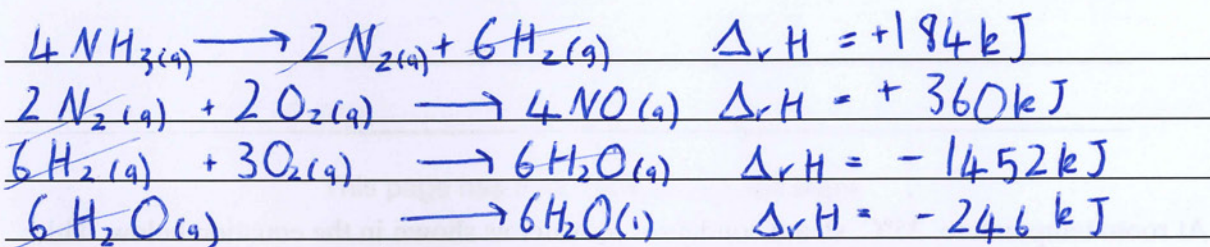 4NH₃(g) → 2N₂(g) + 6H₂(g) ΔᵣH = +184kJ
2N₂(g) + 2O₂(g) → 4NO(g) ΔᵣH = +360kJ
6H₂(g) + 3O₂(g) → 6H₂O(g) ΔᵣH = -1452kJ
6H₂O(g) → 6H₂O(l) ΔᵣH = -246kJ